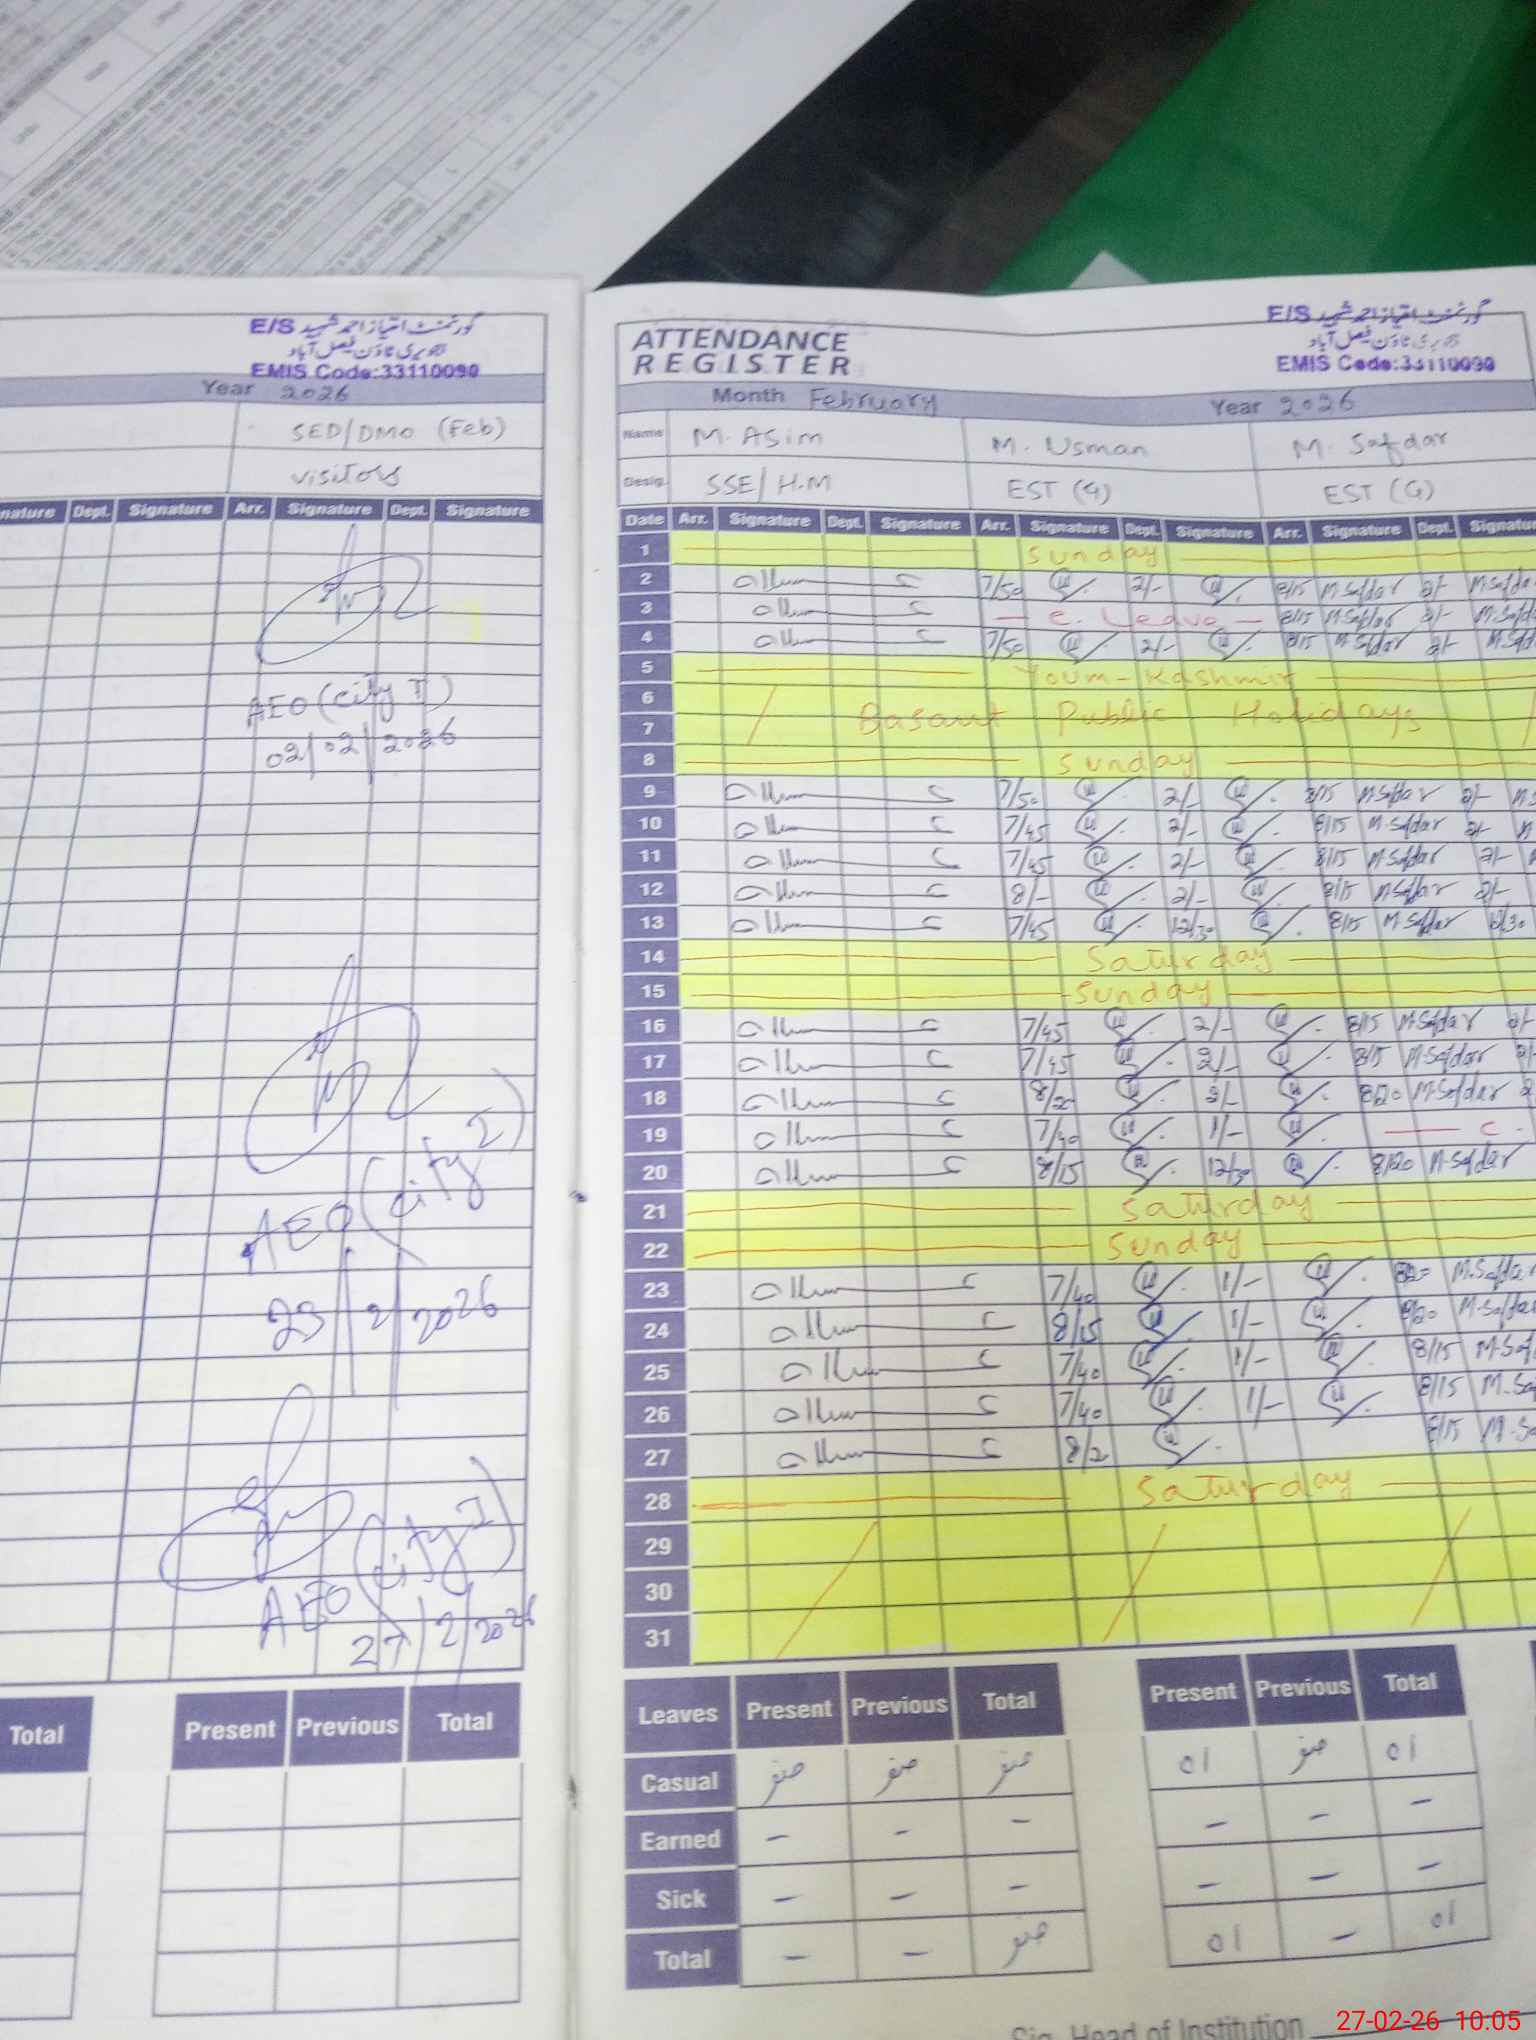 E/S گورنمنٹ امتیاز احمد شہید
EMIS Code:33110090
Year 2026
SED/DMO (Feb)
visitors
nature Dept. Signature Arr. Signature Dept. Signature
AEO (city I)
02/02/2026
AEO (city I)
23/2/2026
AEO (city I)
27/2/2026
Total Present Previous Total
ATTENDANCE
REGISTER
E/S گورنمنٹ امتیاز احمد شہید
EMIS Code:33110090
Month February Year 2026
Name M. Asim M. Usman M. Safdar
Desig. SSE/H.M EST (G) EST (G)
Date Arr. Signature Dept. Signature Arr. Signature Dept. Signature Arr. Signature Dept. Signatu
1 Sunday
2 7/50 2/- 8/15 M.Safdar 2/- M.Safda
3 C. Leave 8/15 M.Safdar 2/-
4 7/50 2/- 8/15 M.Safdar 2/-
5 Youm-Kashmir
6
7 Basant Public Holidays
8 Sunday
9 7/50 2/- 8/15 M.Safdar 2/-
10 7/45 2/- 8/15 M.Safdar 2/-
11 7/45 2/- 8/15 M.Safdar 2/-
12 8/- 2/- 8/15 M.Safdar 2/-
13 7/45 12/30 8/15 M.Safdar 12/30
14 Saturday
15 Sunday
16 7/45 2/- 8/15 M.Safdar 2/-
17 7/45 2/- 8/15 M.Safdar 2/-
18 8/20 2/- 8/20 M.Safdar 2
19 7/40 1/- C.
20 8/15 12/30 8/20 M.Safdar
21 Saturday
22 Sunday
23 7/40 1/- 8/20 M.Safdar
24 8/15 1/- 8/20 M.Safdar
25 7/40 1/- 8/15 M.Saf
26 7/40 1/- 8/15 M.Sa
27 8/2 8/15 M.Sa
28 Saturday
29
30
31
Leaves Present Previous Total Present Previous Total
Casual صفر صفر صفر 01 صفر 01
Earned - - - - - -
Sick - - - - - -
Total - - صفر 01 - 01
Sig. Head of Institution
27-02-26 10:05